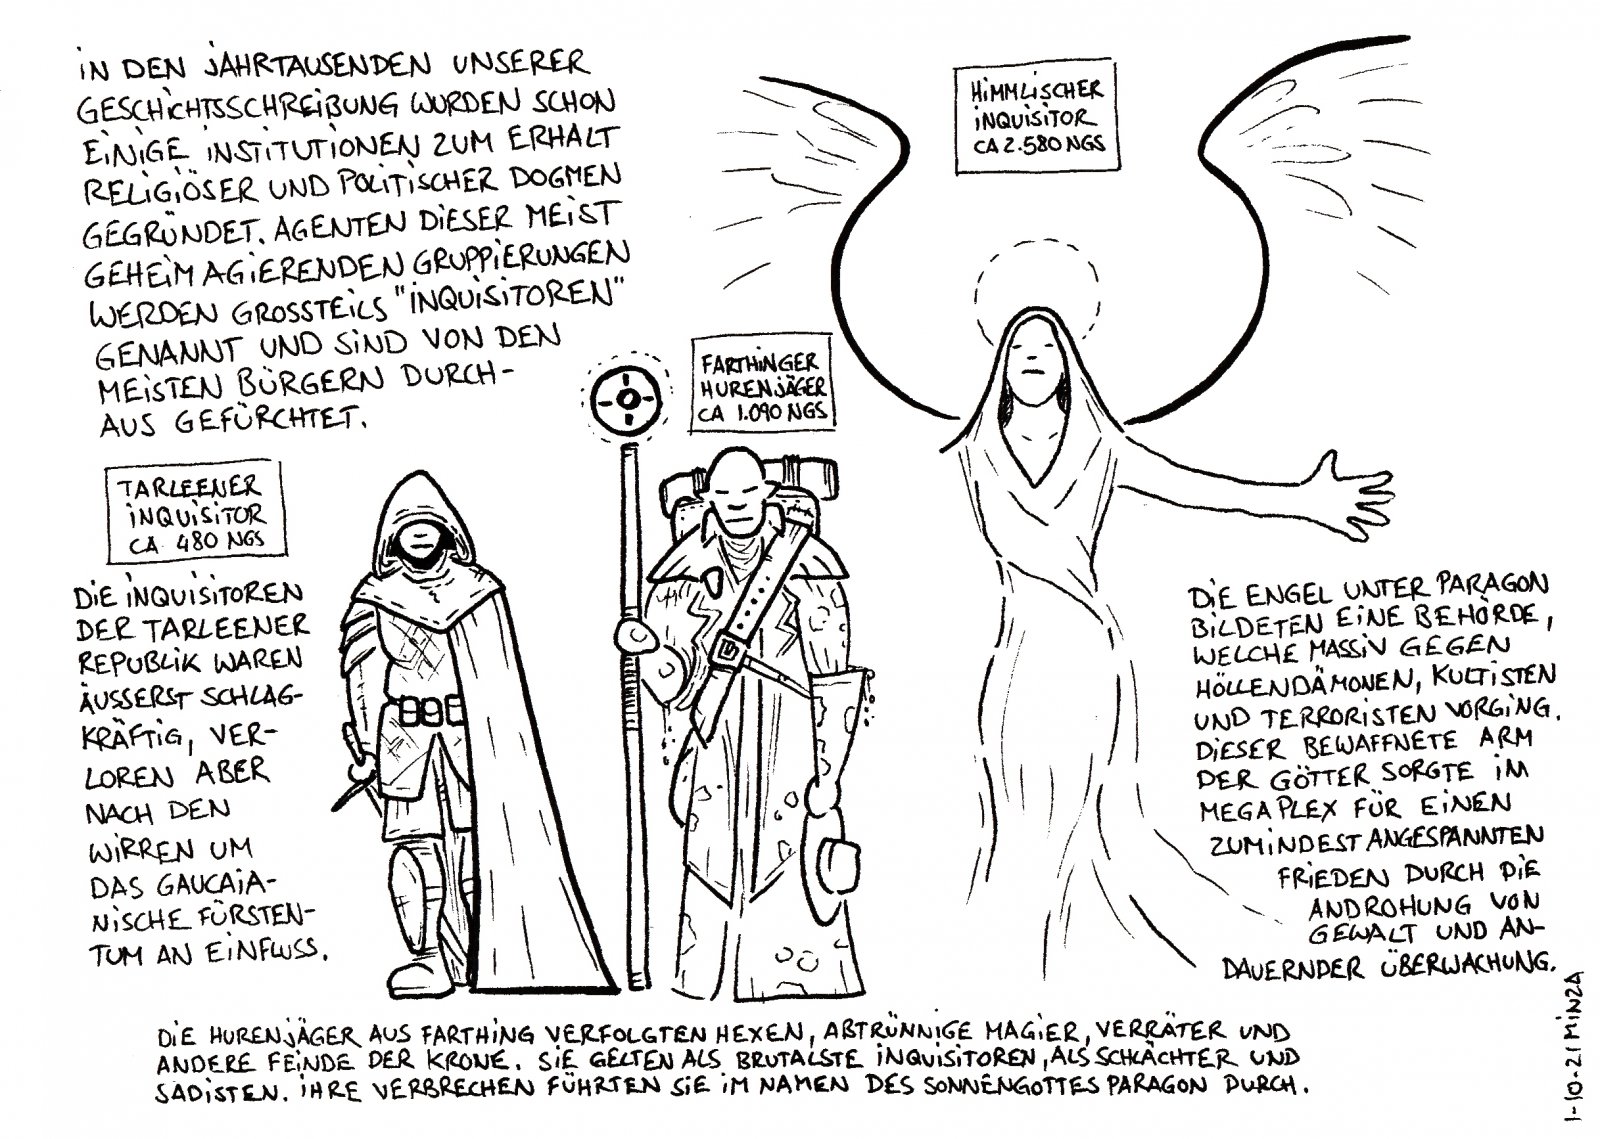 IN DEN JAHRTAUSENDEN UNSERER
GESCHICHTSSCHREIBUNG WURDEN SCHON
EINIGE INSTITUTIONEN ZUM ERHALT
RELIGIÖSER UND POLITISCHER DOGMEN
GEGRÜNDET. AGENTEN DIESER MEIST
GEHEIM AGIERENDEN GRUPPIERUNGEN
WERDEN GROSSTEILS "INQUISITOREN"
GENANNT UND SIND VON DEN
MEISTEN BÜRGERN DURCH-
AUS GEFÜRCHTET.
TARLEENER
INQUISITOR
CA 480 NGS
DIE INQUISITOREN
DER TARLEENER
REPUBLIK WAREN
ÄUSSERST SCHLAG-
KRÄFTIG, VER-
LOREN ABER
NACH DEN
WIRREN UM
DAS GAUCAIA-
NISCHE FÜRSTEN-
TUM AN EINFLUSS.
FARTHINGER
HURENJÄGER
CA 1.090 NGS
DIE HURENJÄGER AUS FARTHING VERFOLGTEN HEXEN, ABTRÜNNIGE MAGIER, VERRÄTER UND
ANDERE FEINDE DER KRONE. SIE GELTEN ALS BRUTALSTE INQUISITOREN, ALS SCHLÄCHTER UND
SADISTEN. IHRE VERBRECHEN FÜHRTEN SIE IM NAMEN DES SONNENGOTTES PARAGON DURCH.
HIMMLISCHER
INQUISITOR
CA 2.580 NGS
DIE ENGEL UNTER PARAGON
BILDETEN EINE BEHÖRDE,
WELCHE MASSIV GEGEN
HÖLLENDÄMONEN, KULTISTEN
UND TERRORISTEN VORGING.
DIESER BEWAFFNETE ARM
DER GÖTTER SORGTE IM
MEGAPLEX FÜR EINEN
ZUMINDEST ANGESPANNTEN
FRIEDEN DURCH DIE
ANDROHUNG VON
GEWALT UND AN-
DAUERNDER ÜBERWACHUNG.
1-10-21 MINZA